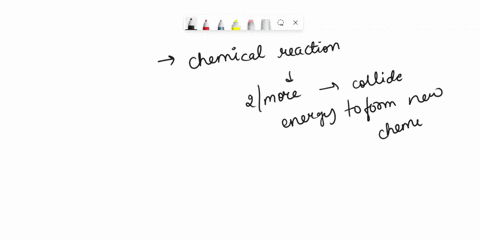 → chemical reaction
↓
2/more → collide
energy to form new
chem